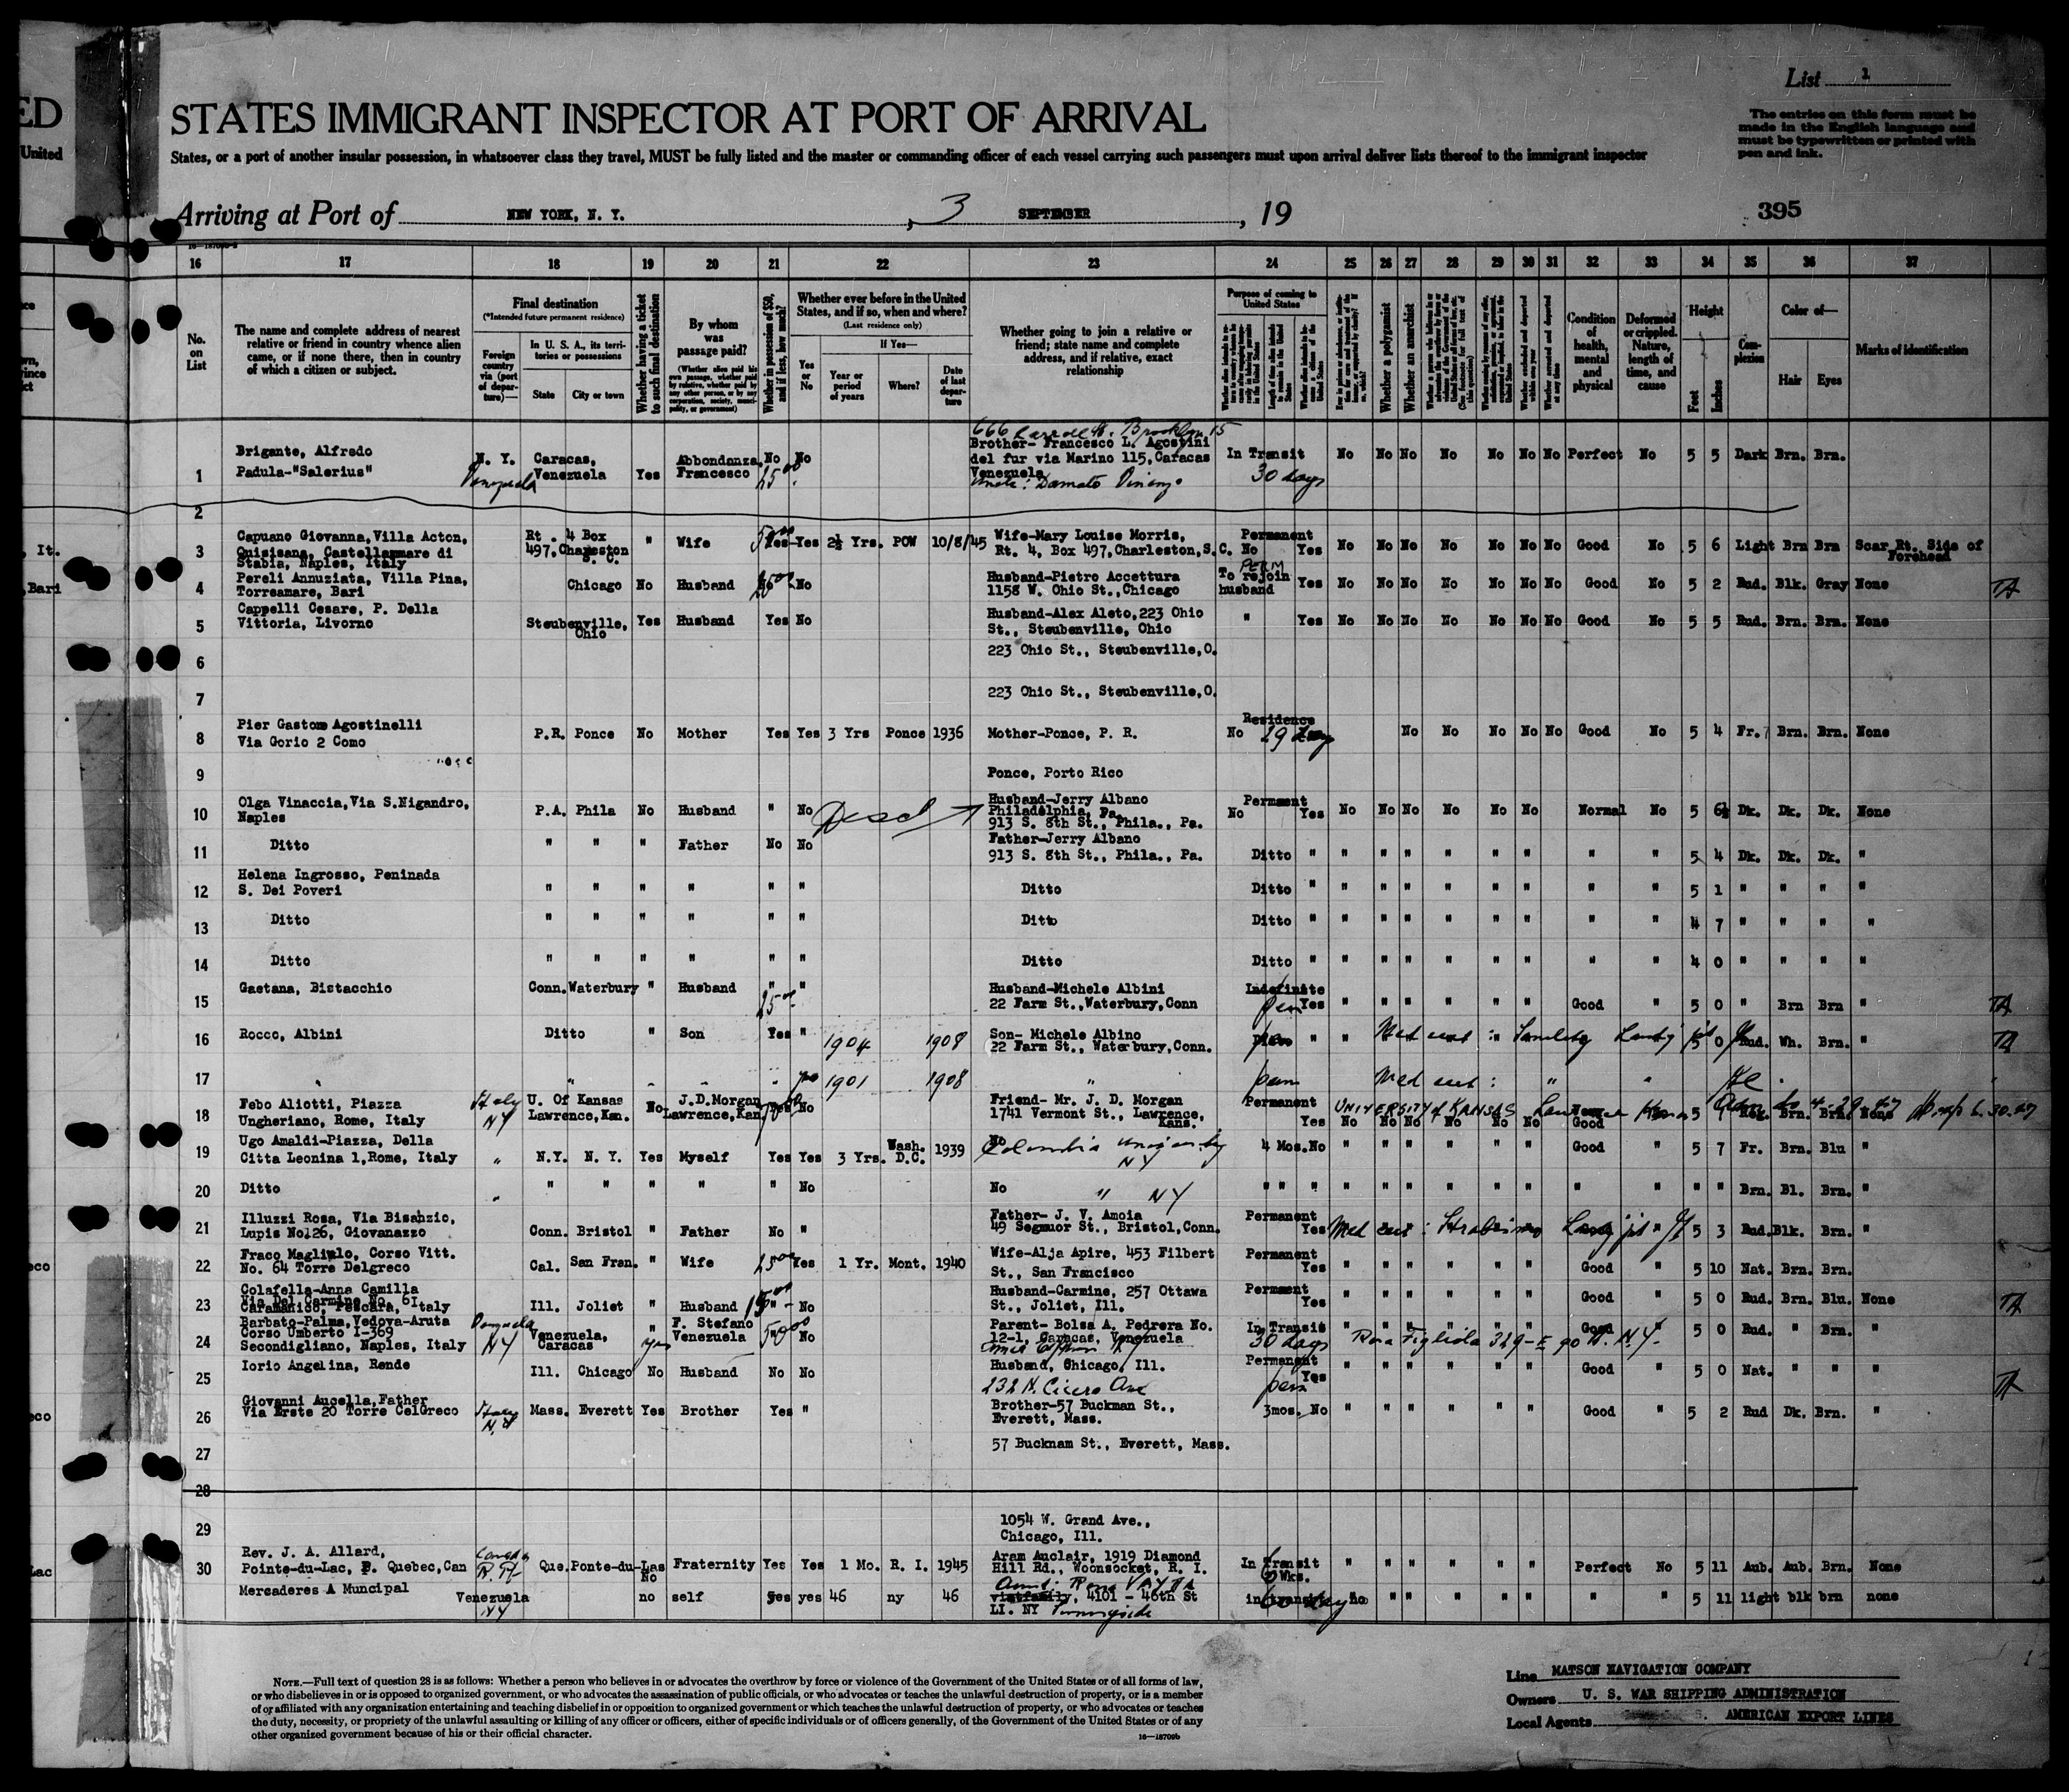 List 1
The entries on this form must be
made in the English language and
must be typewritten or printed with
pen and ink.
ED
STATES IMMIGRANT INSPECTOR AT PORT OF ARRIVAL
United
States, or a port of another insular possession, in whatsoever class they travel, MUST be fully listed and the master or commanding officer of each vessel carrying such passengers must upon arrival deliver lists thereof to the immigrant inspector
Arriving at Port of NEW YORK, N. Y. , 3 SEPTEMBER , 19
395
16 17 18 19 20 21 22 23 24 25 26 27 28 29 30 31 32 33 34 35 36 37
No. on List
The name and complete address of nearest relative or friend in country whence alien came, or if none there, then in country of which a citizen or subject.
Final destination
(*Intended future permanent residence)
Foreign country via (port of departure)—
In U. S. A., its territories or possessions
State
City or town
Whether having a ticket to such final destination
By whom was passage paid?
(Whether alien paid his own passage, whether paid by relative, whether paid by any other person, or by any corporation, society, municipality, or government)
Whether in possession of $50, and if less, how much?
Whether ever before in the United States, and if so, when and where?
(Last residence only)
Yes or No
If Yes—
Year or period of years
Where?
Date of last departure
Whether going to join a relative or friend; state name and complete address, and if relative, exact relationship
Purpose of coming to United States
Length of time alien intends to remain in the United States
Whether a polygamist
Whether an anarchist
Condition of health, mental and physical
Deformed or crippled. Nature, length of time, and cause
Height
Feet
Inches
Complexion
Color of—
Hair
Eyes
Marks of identification
666 Carroll St. Brooklyn 15
1 Brigante, Alfredo
Padula-"Salerius"
N. Y. Venezuela Caracas, Venezuela Yes Abbondanza, Francesco No 25.00 No
Brother- Francesco L. Agostini
del fur via Marino 115, Caracas
Venezuela
Uncle: Damato
In Transit 30 days No No No No No No No Perfect No 5 5 Dark Brn. Brn.
2
3 Capuano Giovanna, Villa Acton,
Quisisana, Castellammare di
Stabia, Naples, Italy
Rt. 4 Box 497, Charleston S. C. " Wife Yes Yes 2½ Yrs. POW 10/8/45
Wife-Mary Louise Morris,
Rt. 4, Box 497, Charleston, S.C.
Permanent No Yes No No No No No No No Good No 5 6 Light Brn Brn Scar Rt. Side of Forehead
4 Pereli Annuziata, Villa Pina,
Torreamare, Bari
Chicago No Husband No
Husband-Pietro Accettura
1158 W. Ohio St., Chicago
PERM To rejoin husband Yes No No No No No No No Good No 5 2 Rud. Blk. Gray None TA
5 Cappelli Cesare, P. Della
Vittoria, Livorno
Steubenville, Ohio Yes Husband Yes No
Husband-Alex Aleto, 223 Ohio
St., Steubenville, Ohio
" Yes No No No No No No No Good No 5 5 Rud. Brn. Brn. None
6 223 Ohio St., Steubenville, O.
7 223 Ohio St., Steubenville, O.
8 Pier Gastone Agostinelli
Via Gorio 2 Como
P.R. Ponce No Mother Yes Yes 3 Yrs Ponce 1936 Mother-Ponce, P. R.
Residence No 29 days No No No No No Good No 5 4 Fr. Brn. Brn. None
9 Ponce, Porto Rico
10 Olga Vinaccia, Via S.Nigandro,
Naples
P.A. Phila No Husband " No
Husband-Jerry Albano
Philadelphia, Pa.
913 S. 8th St., Phila., Pa.
Permanent No Yes No No No No No No Normal No 5 6½ Dk. Dk. Dk. None
11 Ditto " " " Father No No
Father-Jerry Albano
913 S. 8th St., Phila., Pa.
Ditto " " " " " " " " " 5 4 Dk. Dk. Dk. "
12 Helena Ingrosso, Peninada
S. Dei Poveri
" " " " " " Ditto Ditto " " " " " " " " " 5 1 " " " "
13 Ditto " " " " " " Ditto Ditto " " " " " " " " " 4 7 " " " "
14 Ditto " " " " " " Ditto Ditto " " " " " " " " " 4 0 " " " "
15 Gaetana, Bistacchio
Conn. Waterbury " Husband " 25.00 "
Husband-Michele Albini
22 Farm St., Waterbury, Conn
Indefinite perm Yes " " " " " " Good " 5 0 " Brn Brn " TA
16 Rocco, Albini
Ditto " Son Yes " 1904 1908
Son- Michele Albino
22 Farm St., Waterbury, Conn.
" " Med cert: Senility 5 0 Rud. Wh. Brn. " TA
17 " " " " " 1901 1908 " perm Med cert: " "
18 Febo Aliotti, Piazza
Ungheriano, Rome, Italy
Italy NY U. Of Kansas Lawrence, Kan. No J.D.Morgan Lawrence, Kan. Yes No
Friend- Mr. J. D. Morgan
1741 Vermont St., Lawrence, Kans.
Permanent Yes UNIVERSITY of KANSAS No No No No No No Good 5 Brn. Brn. None
19 Ugo Amaldi-Piazza, Della
Citta Leonina 1, Rome, Italy
" N.Y. N. Y. Yes Myself Yes Yes 3 Yrs. Wash. D.C. 1939
No Columbia University NY
4 Mos. No " " " " " " Good " 5 7 Fr. Brn. Blu "
20 Ditto " " " " " " No No " NY " " " " " " " " " " " " " Brn. Bl. Brn. "
21 Illuzzi Rosa, Via Bisanzio,
Lupis No126, Giovanazzo
Conn. Bristol " Father No "
Father- J. V. Amoia
49 Segmuor St., Bristol, Conn.
Permanent Yes Med cert: Strabismus 5 3 Rud. Blk. Brn. "
22 Fraco Magliulo, Corso Vitt.
No. 64 Torre Delgreco
Cal. San Fran. " Wife 25.00 Yes 1 Yr. Mont. 1940
Wife-Alja Apire, 453 Filbert
St., San Francisco
Permanent Yes " " " " " " Good " 5 10 Nat. Brn. Brn.
23 Colafella-Anna Camilla
Via Del Carmine No. 61
Caramanico, Pescara, Italy
Ill. Joliet " Husband No
Husband-Carmine, 257 Ottawa
St., Joliet, Ill.
Permanent Yes " " " " " " Good " 5 0 Rud. Brn. Blu. None TA
24 Barbato-Palma, Vedova-Aruta
Corso Umberto I-369
Secondigliano, Naples, Italy
Venezuela NY Venezuela, Caracas " yes F. Stefano Venezuela 50.00 No
Parent- Bolsa A. Pedrera No.
12-1, Caracas, Venezuela
In Transit 30 days Rosa Figliola 329-E 90 St. N.Y. Good " 5 0 Rud. " Brn. "
25 Iorio Angelina, Rende
Ill. Chicago No Husband No No
Husband, Chicago, Ill.
232 N. Cicero Ave
Permanent perm Yes " " " " " " Good " 5 0 Nat. " " " TA
26 Giovanni Aucella, Father
Via Erste 20 Torre CelGreco
Italy N.Y. Mass. Everett Yes Brother Yes "
Brother-57 Buckman St.,
Everett, Mass.
3mos. No " " " " " " Good " 5 2 Rud Dk. Brn. "
27 57 Bucknam St., Everett, Mass.
28
29 1054 W. Grand Ave.,
Chicago, Ill.
30 Rev. J. A. Allard,
Pointe-du-Lac, P. Quebec, Can
Canada Que. Ponte-du-Las No Fraternity Yes Yes 1 Mo. R. I. 1945
Aram Auclair, 1919 Diamond
Hill Rd., Woonsocket, R. I.
In Transit 6 Wks. " " " " " " Perfect No 5 11 Aub. Aub. Brn. None
Mercaderes A Muncipal
Venezuela NY no self yes yes 46 ny 46
4101 - 46th St
LI. NY Sunnyside
in transit 60 days no " " " " " " " 5 11 light blk brn none
NOTE.—Full text of question 28 is as follows: Whether a person who believes in or advocates the overthrow by force or violence of the Government of the United States or of all forms of law,
or who disbelieves in or is opposed to organized government, or who advocates the assassination of public officials, or who advocates or teaches the unlawful destruction of property, or is a member
of or affiliated with any organization entertaining and teaching disbelief in or opposition to organized government or which teaches the unlawful destruction of property, or who advocates or teaches
the duty, necessity, or propriety of the unlawful assaulting or killing of any officer or officers, either of specific individuals or of officers generally, of the Government of the United States or of any
other organized government because of his or their official character.
16—18700b
Line MATSON NAVIGATION COMPANY
Owners U. S. WAR SHIPPING ADMINISTRATION
Local Agents AMERICAN EXPORT LINES